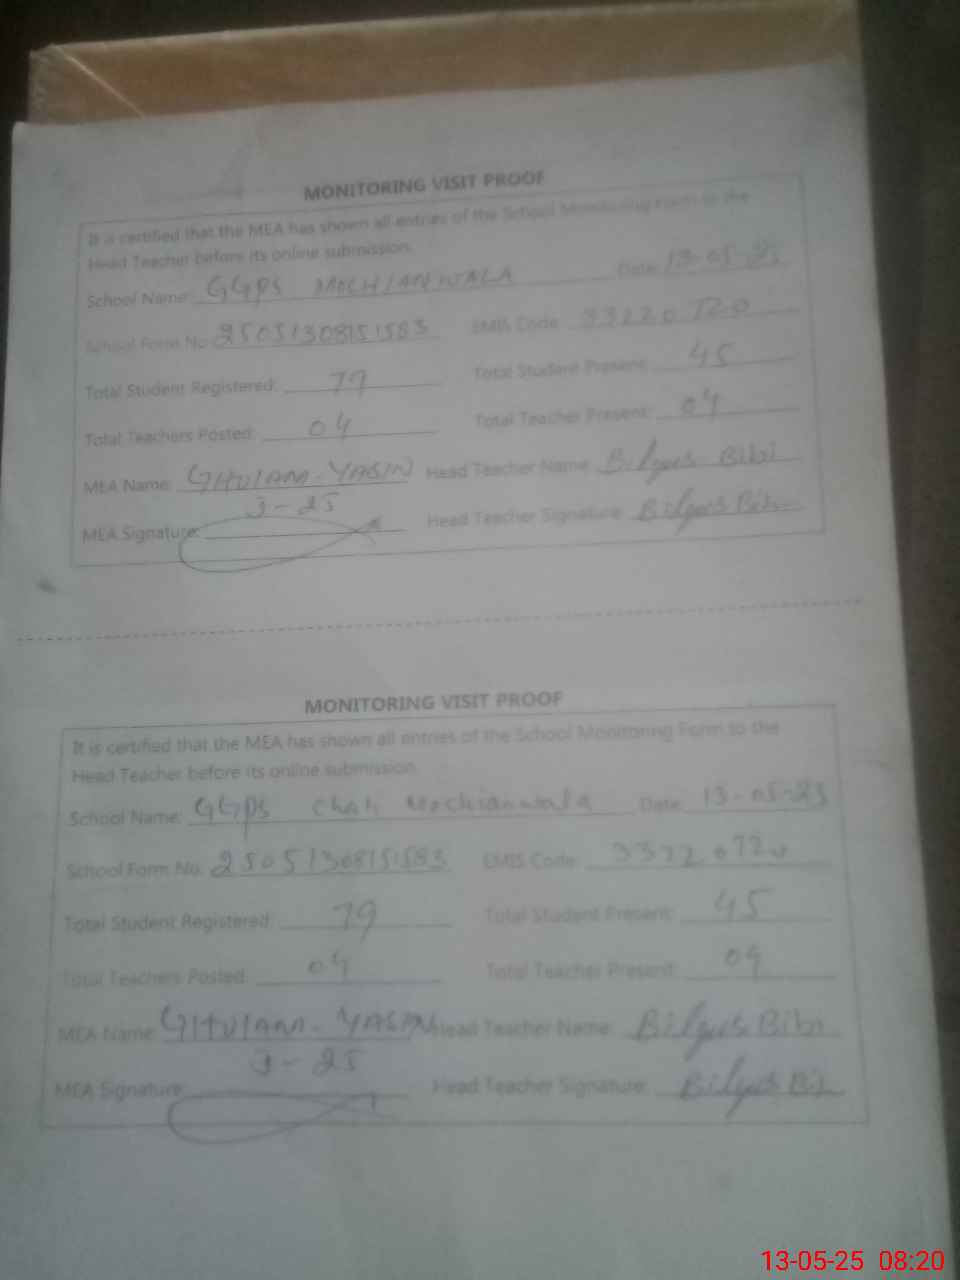 MONITORING VISIT PROOF
It is certified that the MEA has shown all entries of the School Monitoring Form to the
Head Teacher before its online submission.
School Name: GGPS MOCHIANWALA Date: 13-05-25
School Form No: 25051308151583 EMIS Code: 33220720
Total Student Registered: 79 Total Student Present: 45
Total Teachers Posted: 04 Total Teacher Present: 04
MEA Name: GHULAM-YASIN Head Teacher Name: Bilqees Bibi
J-25
MEA Signature: Head Teacher Signature: Bilqees Bibi
MONITORING VISIT PROOF
It is certified that the MEA has shown all entries of the School Monitoring Form to the
Head Teacher before its online submission.
School Name: GGPS Chah Mochianwala Date: 13-05-25
School Form No: 25051308151583 EMIS Code: 33220720
Total Student Registered: 79 Total Student Present: 45
Total Teachers Posted: 04 Total Teacher Present: 04
MEA Name: GHULAM-YASIN Head Teacher Name: Bilqees Bibi
J-25
MEA Signature: Head Teacher Signature: Bilqees Bibi
13-05-25 08:20